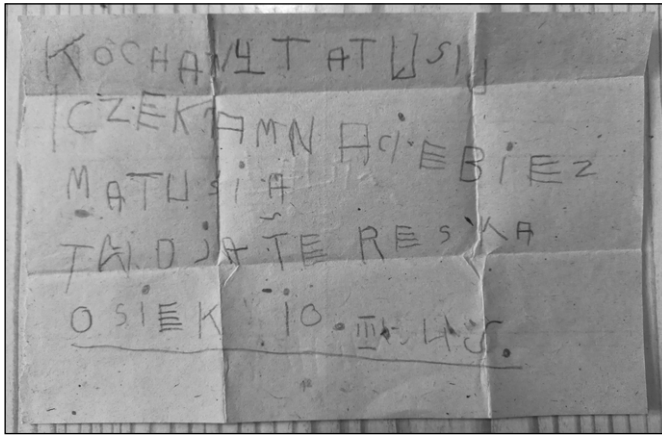 KOCHANY TATUSIU
ICZEKAMNACIEBIEZ
MATUSIĄ
TWOJA TERESKA
OSIEK 10.III.45.